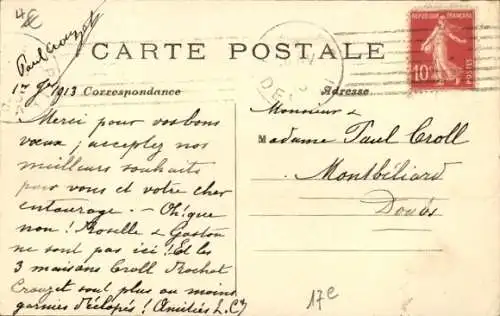 4€
Paul Crouzet
CARTE POSTALE
RÉPUBLIQUE FRANÇAISE
10
POSTES
1er Jer 1913 Correspondance
Adresse
Merci pour vos bons
vœux ; acceptez nos
meilleurs souhaits
pour vous et votre cher
entourage. - Oh! que
non ! Roselle & Gaston
ne sont pas ici ! Et les
3 maisons Croll Rochat
Crouzet sont plus ou moins
garnies d'éclopés ! Amitiés L. C
Monsieur &
Madame Paul Croll
Montbéliard
Doubs
17e